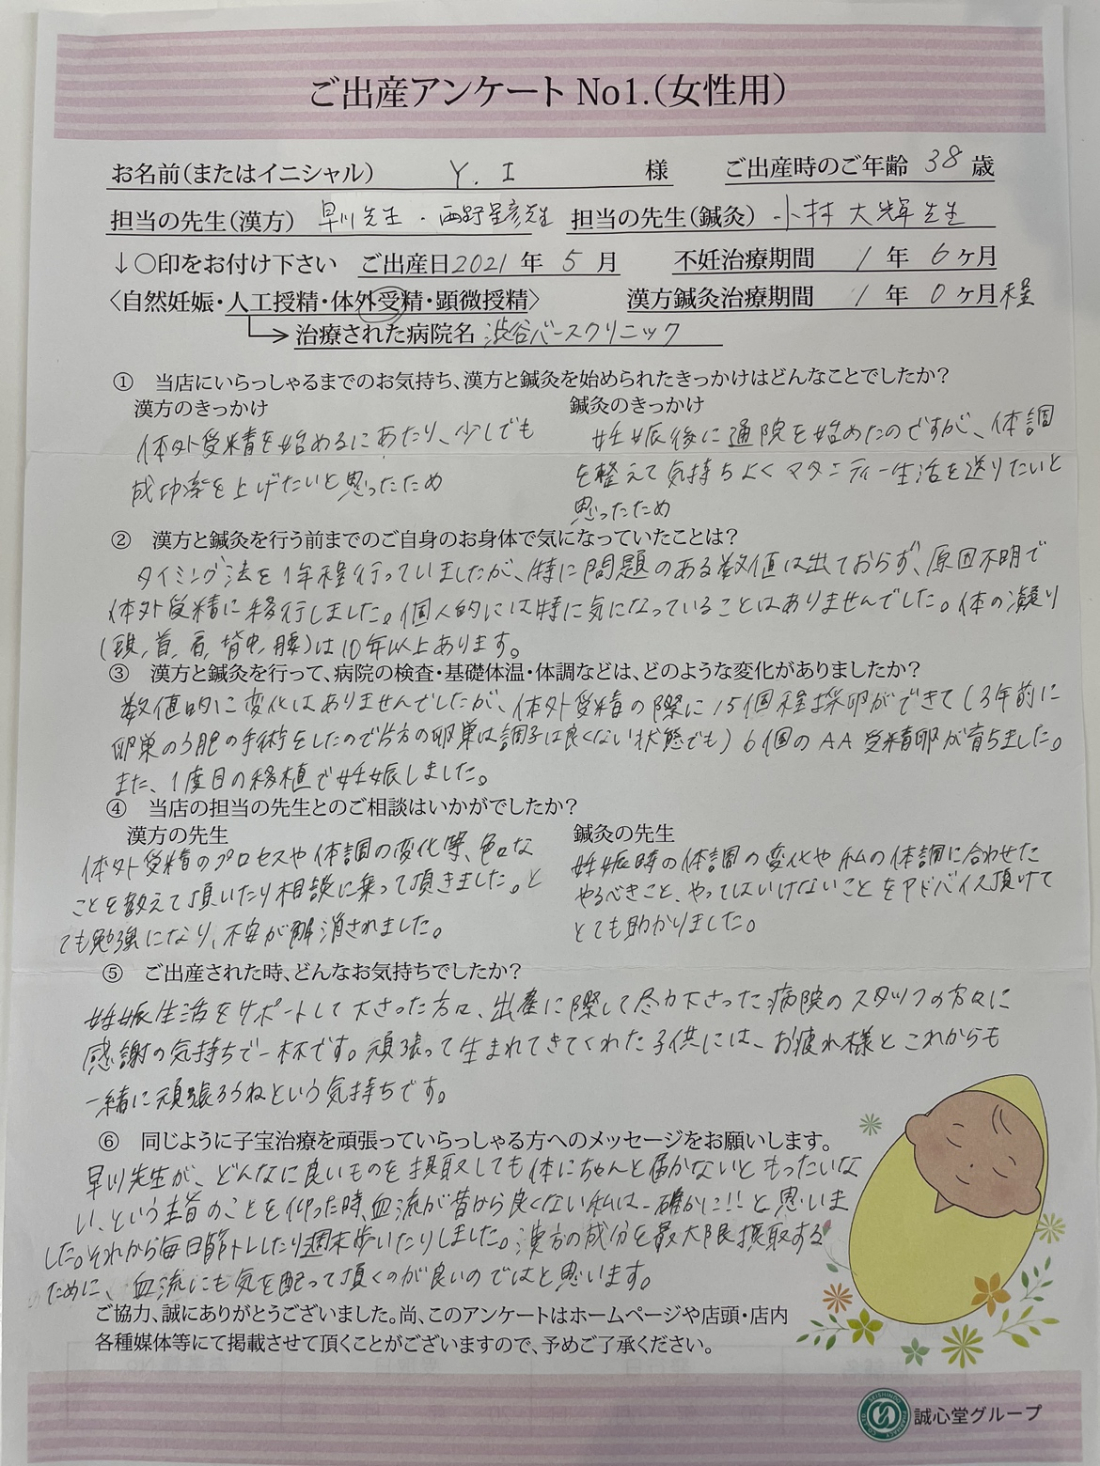 ご出産アンケート No1.(女性用)
お名前(またはイニシャル) Y. I 様 ご出産時のご年齢 38 歳
担当の先生(漢方) 早川先生・西野星彦先生 担当の先生(鍼灸) 小林大輝先生
↓○印をお付け下さい ご出産日2021年 5 月 不妊治療期間 1 年 6ヶ月
〈自然妊娠・人工授精・体外受精・顕微授精〉 漢方鍼灸治療期間 1 年 0ヶ月程
治療された病院名 渋谷バースクリニック
① 当店にいらっしゃるまでのお気持ち、漢方と鍼灸を始められたきっかけはどんなことでしたか?
漢方のきっかけ
体外受精を始めるにあたり、少しでも
成功率を上げたいと思ったため
鍼灸のきっかけ
妊娠後に通院を始めたのですが、体調
を整えて気持ちよくマタニティー生活を送りたいと
思ったため
② 漢方と鍼灸を行う前までのご自身のお身体で気になっていたことは?
タイミング法を1年程行っていましたが、特に問題のある数値は出ておらず、原因不明で
体外受精に移行しました。個人的には特に気になっていることはありませんでした。体の凝り
(頭、首、肩、背中、腰)は10年以上あります。
③ 漢方と鍼灸を行って、病院の検査・基礎体温・体調などは、どのような変化がありましたか?
数値的に変化はありませんでしたが、体外受精の際に15個程採卵ができて(3年前に
卵巣のう腫の手術をしたので片方の卵巣は調子は良くない状態でも)6個のAA受精卵が育ちました。
また、1度目の移植で妊娠しました。
④ 当店の担当の先生とのご相談はいかがでしたか?
漢方の先生
体外受精のプロセスや体調の変化等、色々な
ことを教えて頂いたり相談に乗って頂きました。と
ても勉強になり、不安が解消されました。
鍼灸の先生
妊娠時の体調の変化や私の体調に合わせた
やるべきこと、やってはいけないことをアドバイス頂けて
とても助かりました。
⑤ ご出産された時、どんなお気持ちでしたか?
妊娠生活をサポートして下さった方々、出産に際して尽力下さった病院のスタッフの方々に
感謝の気持ちで一杯です。頑張って生まれてきてくれた子供には、お疲れ様とこれからも
一緒に頑張ろうねという気持ちです。
⑥ 同じように子宝治療を頑張っていらっしゃる方へのメッセージをお願いします。
早川先生が、どんなに良いものを摂取しても体にちゃんと届かないともったいな
い、という主旨のことを仰った時、血流が昔から良くない私は、確かに!!と思いま
した。それから毎日筋トレしたり週末歩いたりしました。漢方の成分を最大限摂取する
ために、血流にも気を配って頂くのが良いのではと思います。
ご協力、誠にありがとうございました。尚、このアンケートはホームページや店頭・店内
各種媒体等にて掲載させて頂くことがございますので、予めご了承ください。
誠心堂グループ